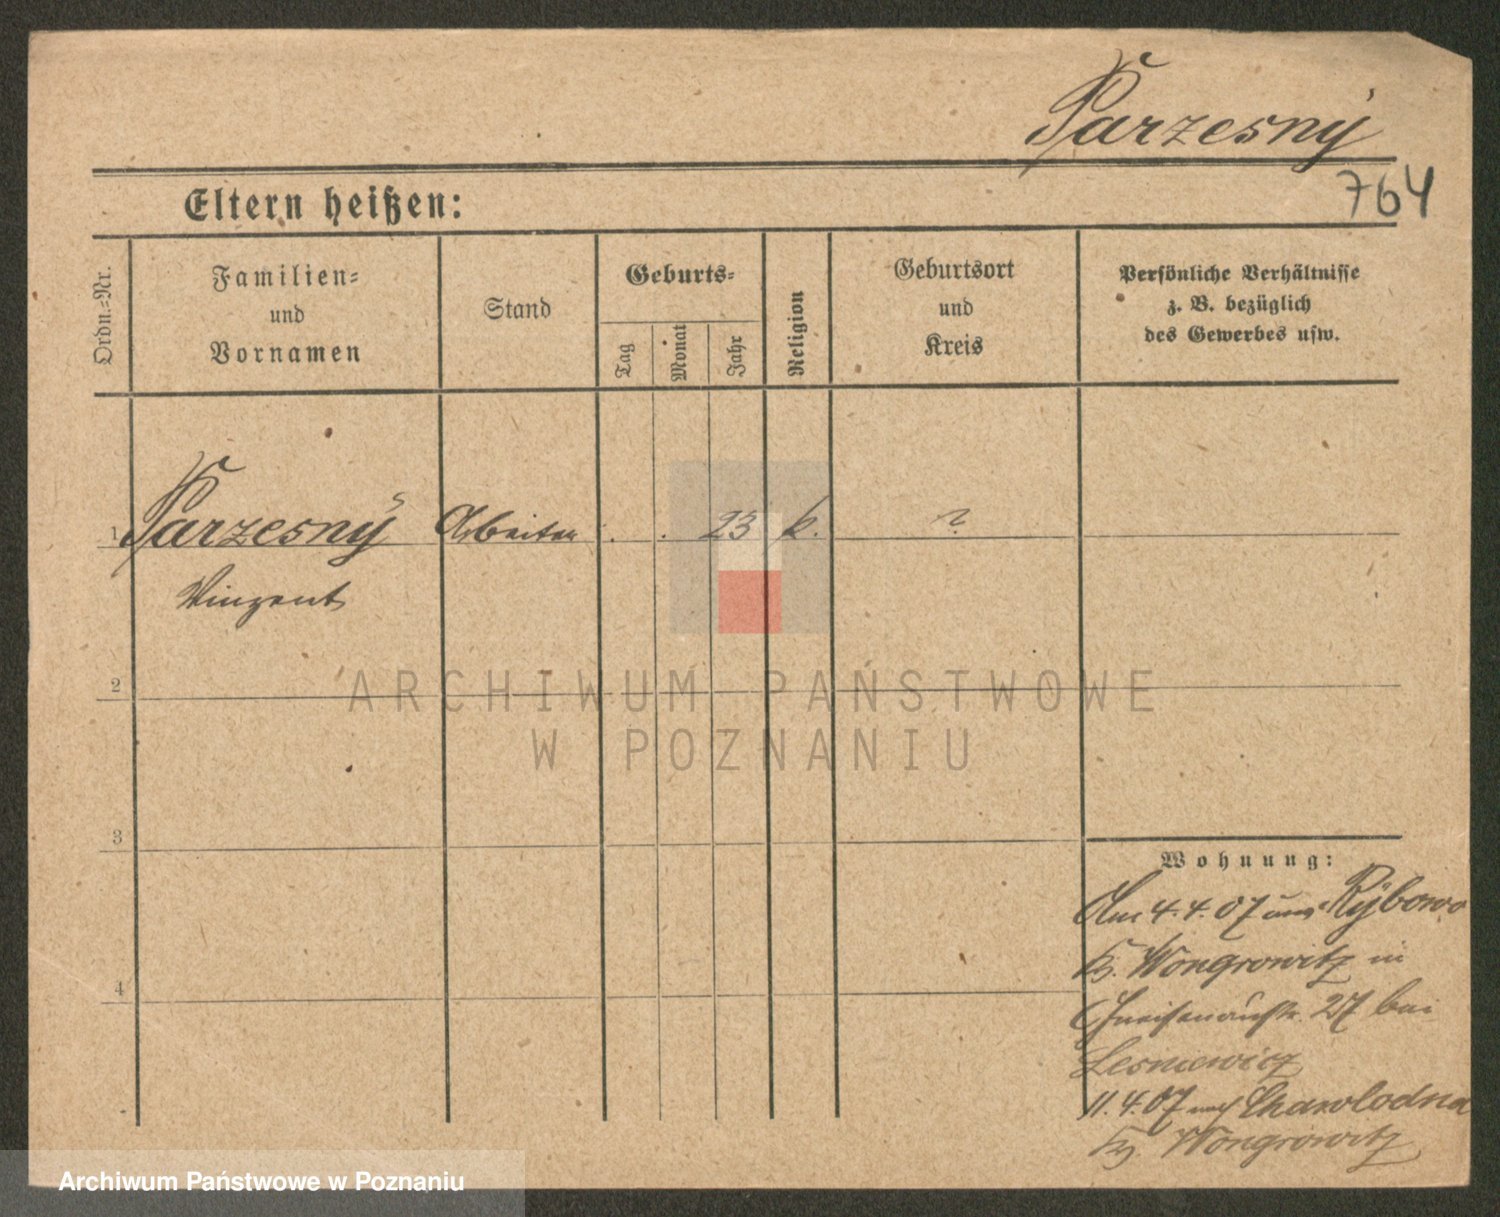 Parzesny
764
Eltern heißen:
Ordn.-Nr.
Familien-
und
Vornamen
Stand
Geburts-
Tag
Monat
Jahr
Religion
Geburtsort
und
Kreis
Persönliche Verhältnisse
z. B. bezüglich
des Gewerbes usw.
1 Parzesny Arbeiter . . 23 k. ?
Vinzent
2
ARCHIWUM PAŃSTWOWE
W POZNANIU
3
Wohnung:
Am 4.4.07 aus Rybowo
Kr. Wongrowitz in
Gneisenaustr. 27 bei
Lesniewicz
4
11.4.07 nach
Kr. Wongrowitz
Archiwum Państwowe w Poznaniu